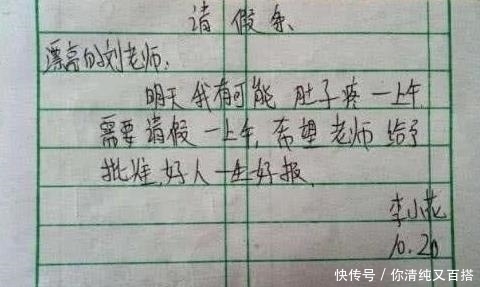 请假条
漂亮的刘老师,
明天我有可能肚子疼一上午.
需要请假一上午,希望老师给予
批准,好人一生好报.
李小花
10.20
快传号/你清纯又百搭